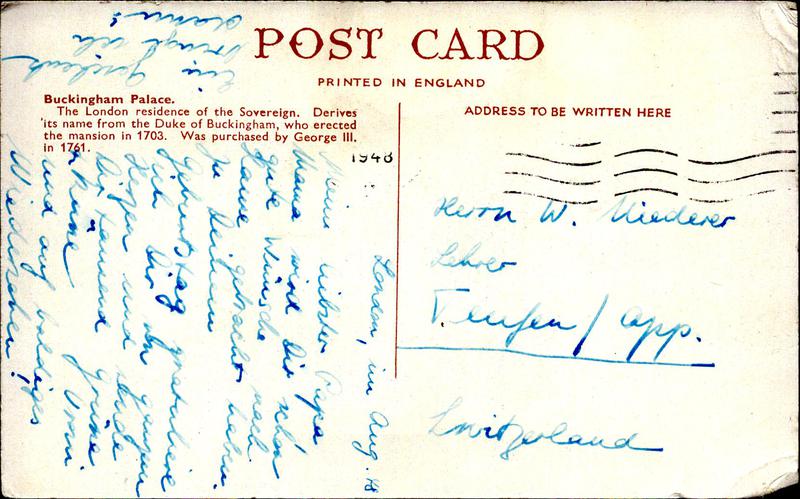 POST CARD
PRINTED IN ENGLAND
Buckingham Palace.
The London residence of the Sovereign. Derives
its name from the Duke of Buckingham, who erected
the mansion in 1703. Was purchased by George III.
in 1761.
ADDRESS TO BE WRITTEN HERE
1948
London, im Aug. 48
Mein liebster Papa
Mama wird Dir schon
gute Wünsche nach
Hause gebracht haben.
Zu Deinem
Geburtstag gratuliere
ich Dir von ganzem
Herzen und sende
Dir tausend Grüsse
und auf baldiges
Wiedersehen!
Ein Geschenk
bringt
Herrn W. Niederer
Lehrer
Teufen / App.
Switzerland